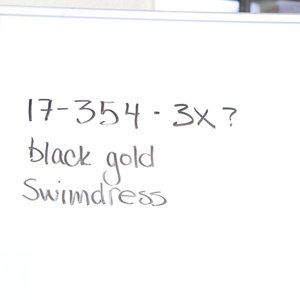 17-354 · 3x?
black gold
Swimdress